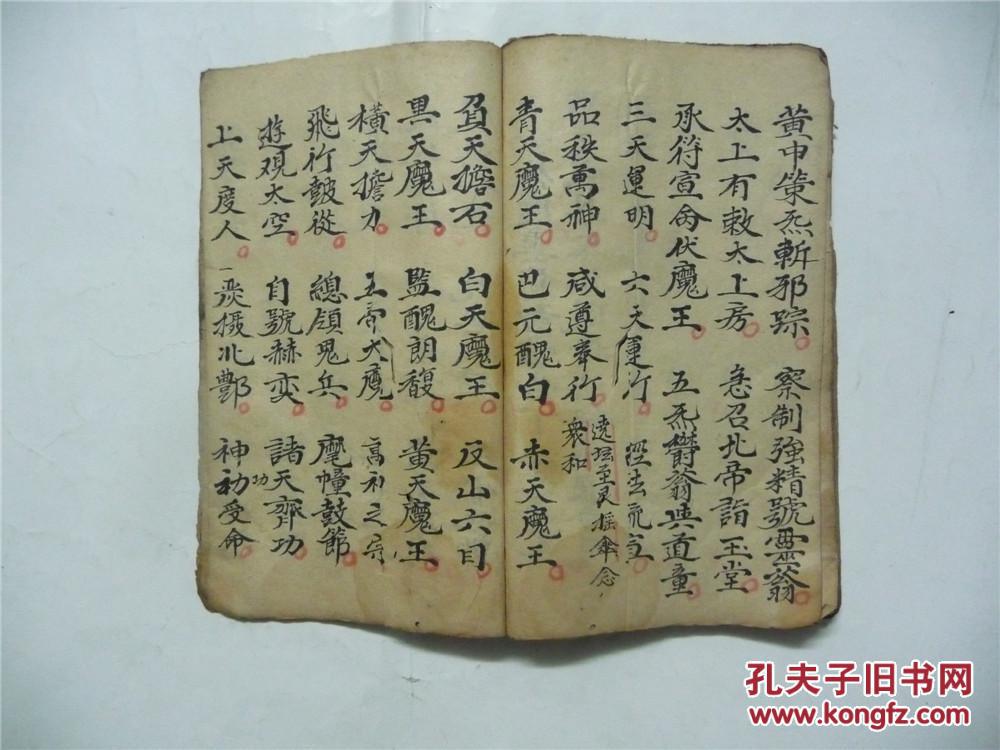 黄中策炁斬邪踪 察制強精號靈翁
太上有敕太上房 急召北帝詣玉堂
承符宣命伏魔王 五炁欝翁共道童
三天運明 六天運行
品秩萬神 咸遵奉行 衆和
青天魔王 巴元醜白 赤天魔王
負天擔石 白天魔王 反山六目
黑天魔王 監醜朗馥 黄天魔王
橫天擔力 五帝大魔
飛行鼓從 總領鬼兵 麾幢鼓節
遊观太空 自號赫奕 諸天齊功 功
上天度人 嚴摄北酆 神初受命
孔夫子旧书网
www.kongfz.com